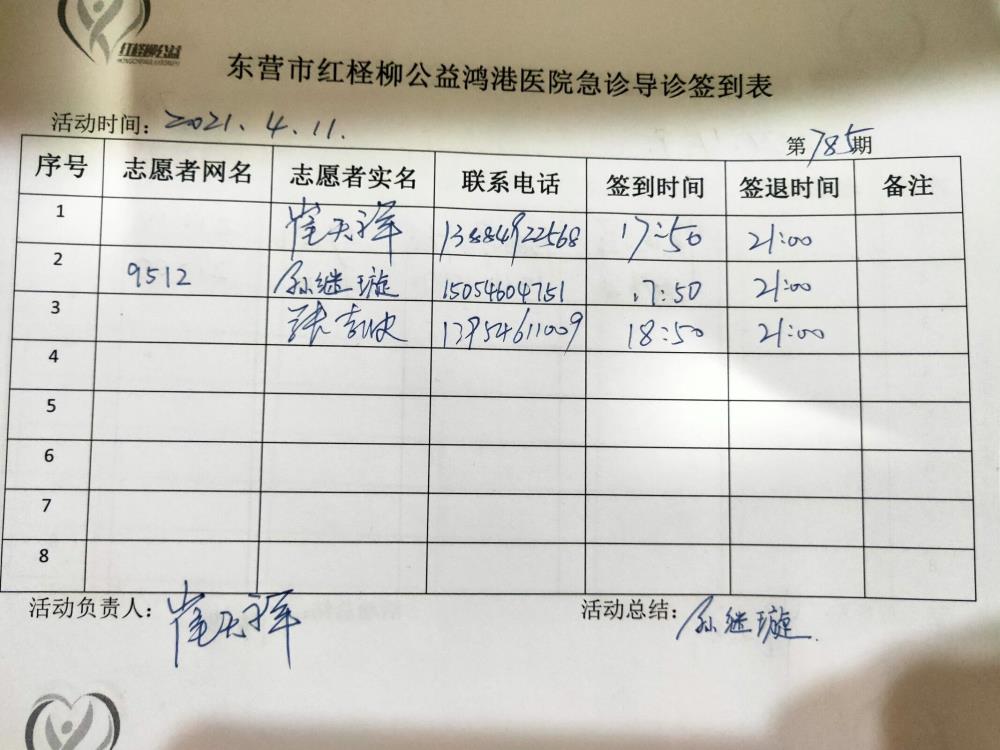 红柽柳公益
东营市红柽柳公益鸿港医院急诊导诊签到表
活动时间：2021.4.11.
第785期
序号 志愿者网名 志愿者实名 联系电话 签到时间 签退时间 备注
1 崔天祥 13884922568 17:50 21:00
2 9512 孙继璇 15054604751 17:50 21:00
3 张 13954611009 18:50 21:00
4
5
6
7
8
活动负责人：崔天祥
活动总结：孙继璇